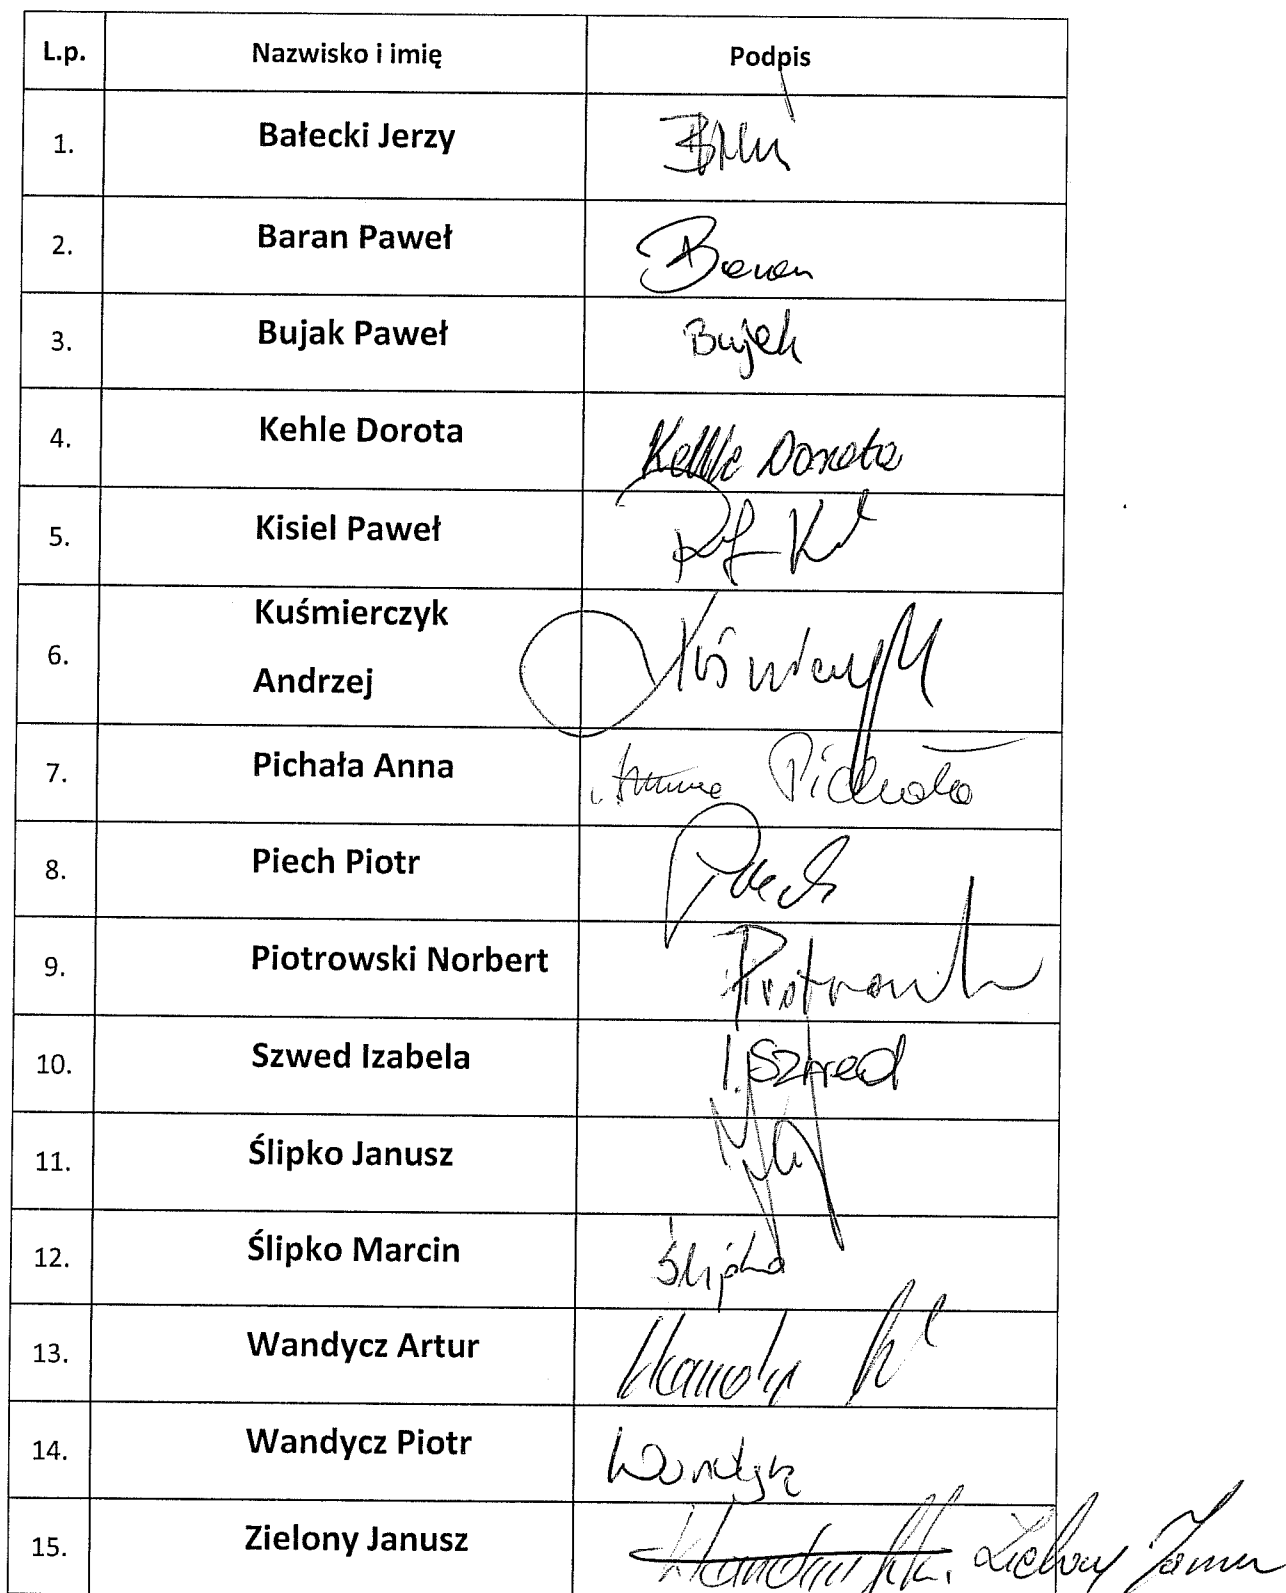 L.p. Nazwisko i imię Podpis
1. Bałecki Jerzy
2. Baran Paweł Baran
3. Bujak Paweł Bujak
4. Kehle Dorota Kehle Dorota
5. Kisiel Paweł
6. Kuśmierczyk
Andrzej
7. Pichała Anna Anna Pichała
8. Piech Piotr Piech
9. Piotrowski Norbert
10. Szwed Izabela I. Szwed
11. Ślipko Janusz
12. Ślipko Marcin Ślipko
13. Wandycz Artur
14. Wandycz Piotr Wandycz
15. Zielony Janusz Zielony Janusz